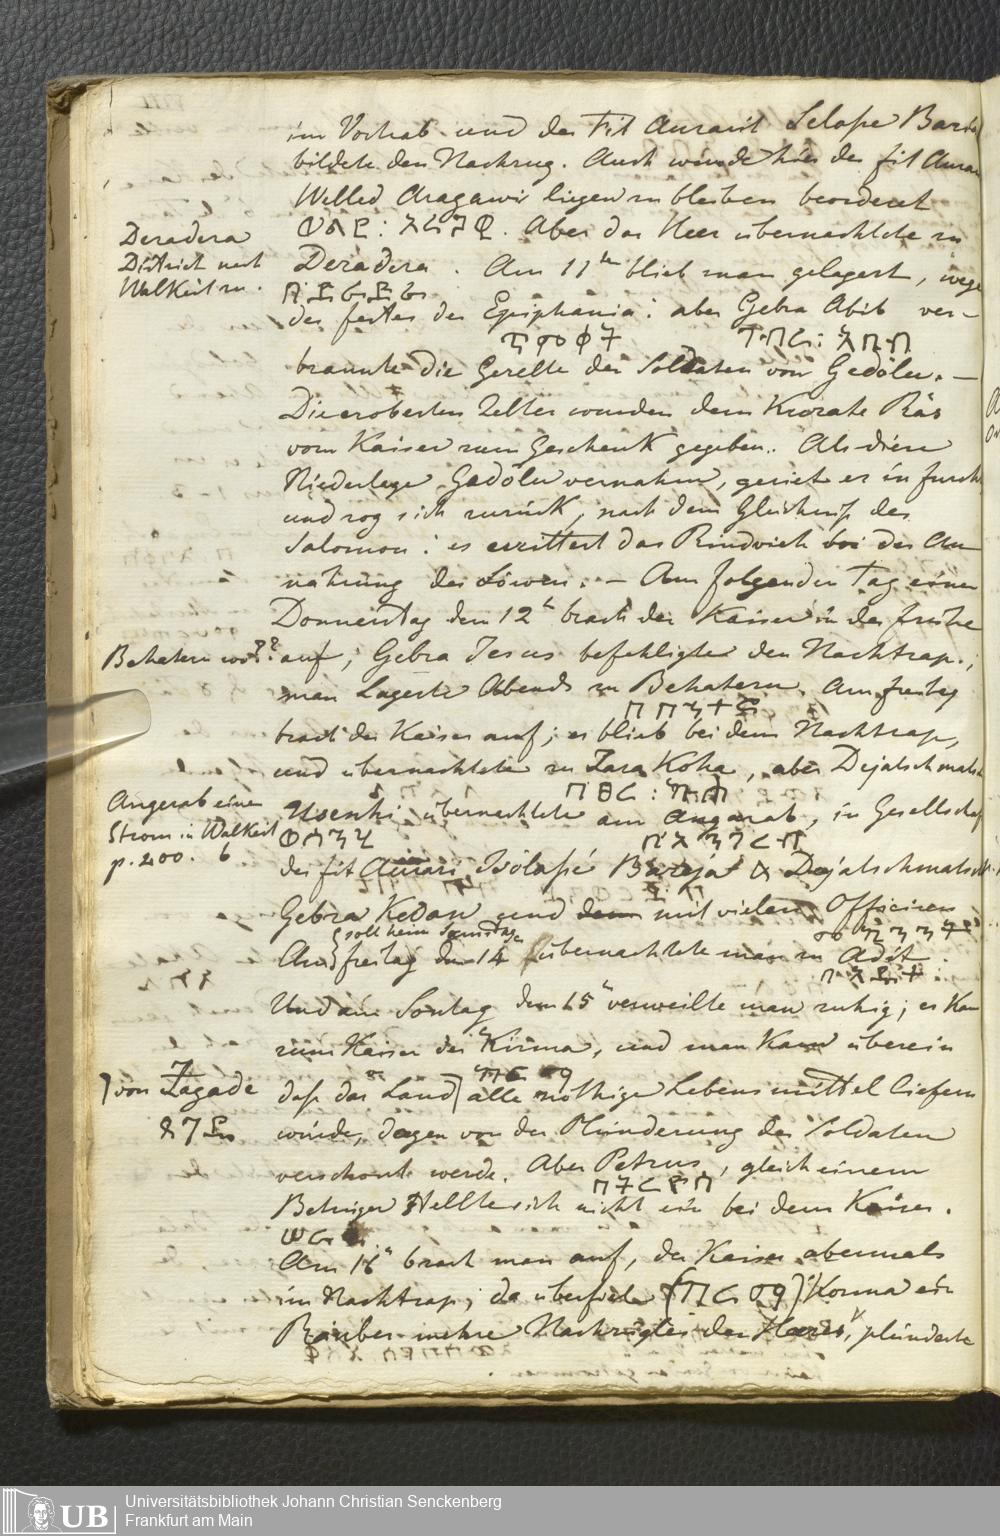 im Vortrab und der Fit Aurari Selasse Baria
bildete den Nachzug. Auch wurde hier der fit Aurar
Welled Aragawi liegen zu bleiben beordert
ወልደ : አረጋዊ. Aber das Heer übernachtete zu
Deradera
Distrikt nach
Walkeit zu.
Deradera. Am 11ten blieb man gelagert, wege
በደራደራ
des festes der Epiphania: aber Gebra Abib ver-
ጥምቀት ገብር : አቢብ
brannte die Gezelte der Soldaten von Gedölu. —
Die eroberten Zelter wurden dem Kuorate Räs
vom Kaiser zum Geschenk gegeben. Als diese
Niederlage Gedölu vernahm, geriet er in furcht
und zog sich zurück, nach dem Gleichniss des
Salomon: es erzittert das Rindvieh bei der An-
näherung des Löwen. — Am folgenden Tag einem
Donnerstag dem 12ten brach der Kaiser in der frühe
Behatern wo??
auf; Gebra Jesus befehligte den Nachtrap.;
man lagerte Abends zu Behatern. Am freitag
brach der Kaiser auf; er blieb bei dem Nachtrap,
und übernachtete zu Zara Koha, aber Dejatschmatsch
Angerab einen
Strom in Walkeit
p. 200. 6
übernachtete am Angarab, in Gesellschaf
des fit Aurari Isölasié Bareja & Dejatschmatsch
Gebra Kedan und mit vielen Officiren
soll heim Samstag
Am freitag den 14 übernachtete man zu Adit.
Und am Sontag dem 15ten verweilte man ruhig; es kam
zum Kaiser der Kirma, und man kam überein
von Zagade
ጸገዴ
dass das Land alle nöthige Lebensmittel liefern
würde, dagegen von der Plünderung der Soldaten
verschont werde. Aber Petrus, gleich einem
Betrüger stellte sich nicht ein bei dem Kaiser.
Am 16ten brach man auf, der Kaiser abermals
im Nachtrap; da überfiele Korma ein
Räuber mehre Nachzügler des Heeres, plünderte
Universitätsbibliothek Johann Christian Senckenberg
Frankfurt am Main
UB